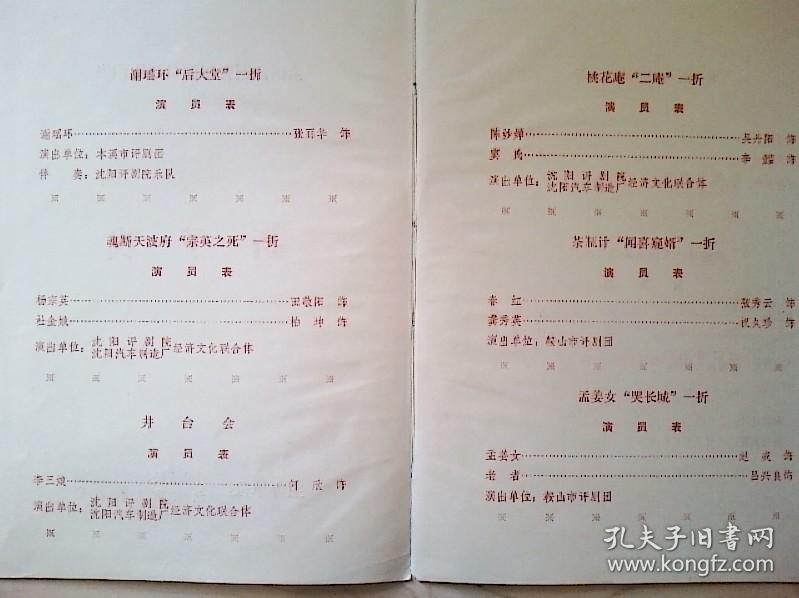 谢瑶环“后大堂”一折
演 员 表
谢瑶环……张百华 饰
演出单位：本溪市评剧团
伴 奏：沈阳评剧院乐队
魂断天波府“宗英之死”一折
演 员 表
杨宗英……田敬阳 饰
杜金娥……柏 坤 饰
演出单位：沈阳评剧院
沈阳汽车制造厂经济文化联合体
井 台 会
演 员 表
李三娘……何 欣 饰
演出单位：沈阳评剧院
沈阳汽车制造厂经济文化联合体
桃花庵“二庵”一折
演 员 表
陈妙婵……吴丹阳 饰
窦 氏……李 饰
演出单位：沈阳评剧院
沈阳汽车制造厂经济文化联合体
茶瓶计“闻喜窥婿”一折
演 员 表
春 红……张秀云 饰
龚秀英……饰
演出单位：鞍山市评剧团
孟姜女“哭长城”一折
演 员 表
孟姜女……赵 饰
老 者……吕兴良 饰
演出单位：鞍山市评剧团
孔夫子旧书网
www.kongfz.com